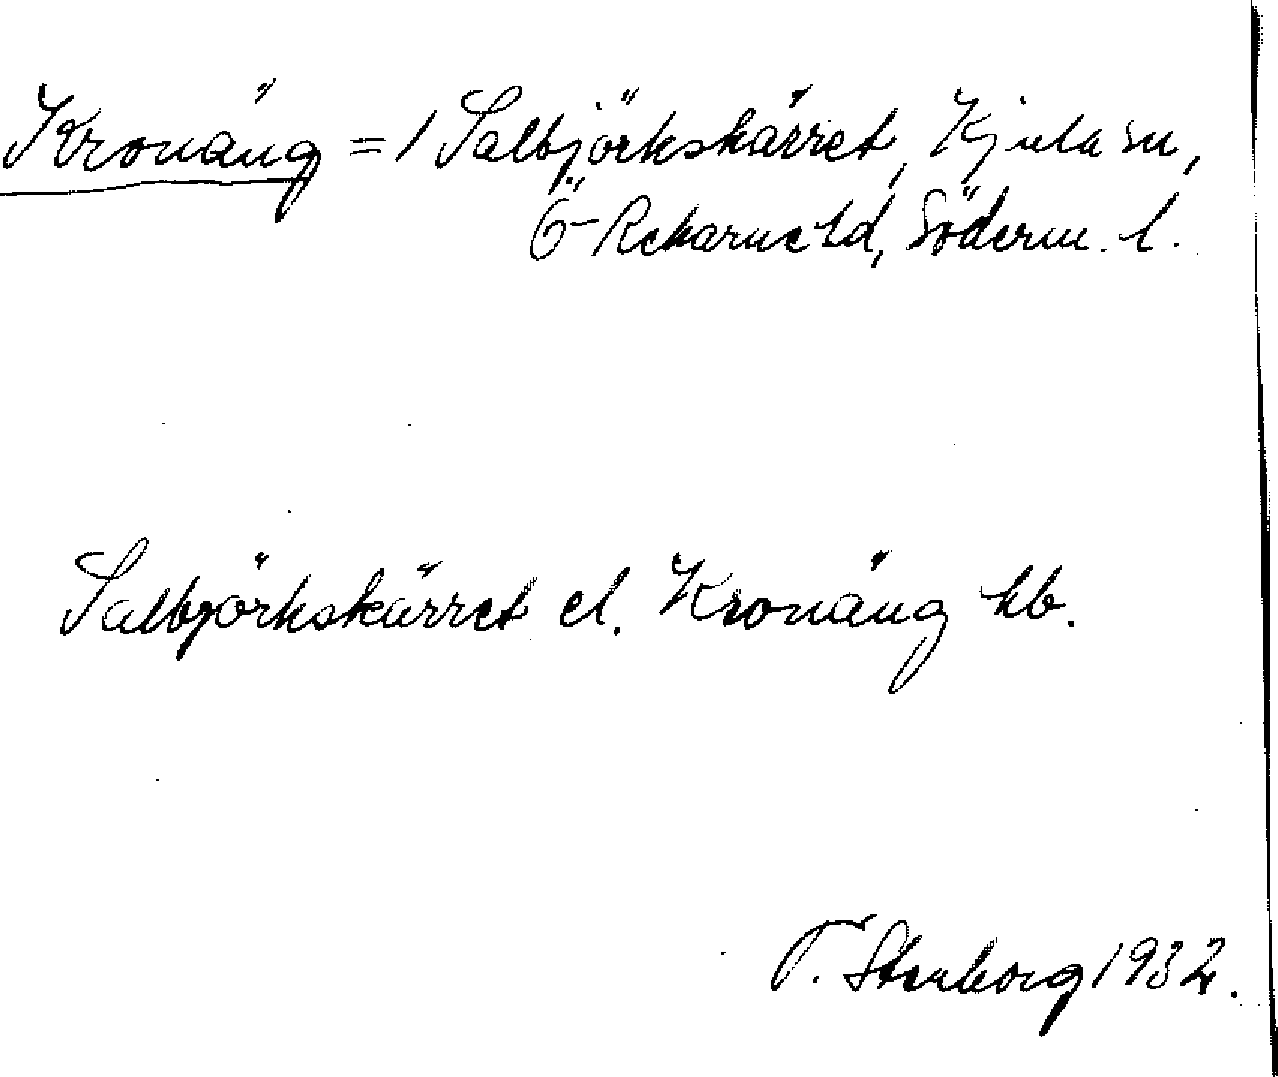 Kronäng = 1 Salbjörkskärret, Kjula sn,
Ö-Rekarne hd, Söderm. l.
Salbjörkskärret el. Kronäng hb.
T. Stenborg 1932.